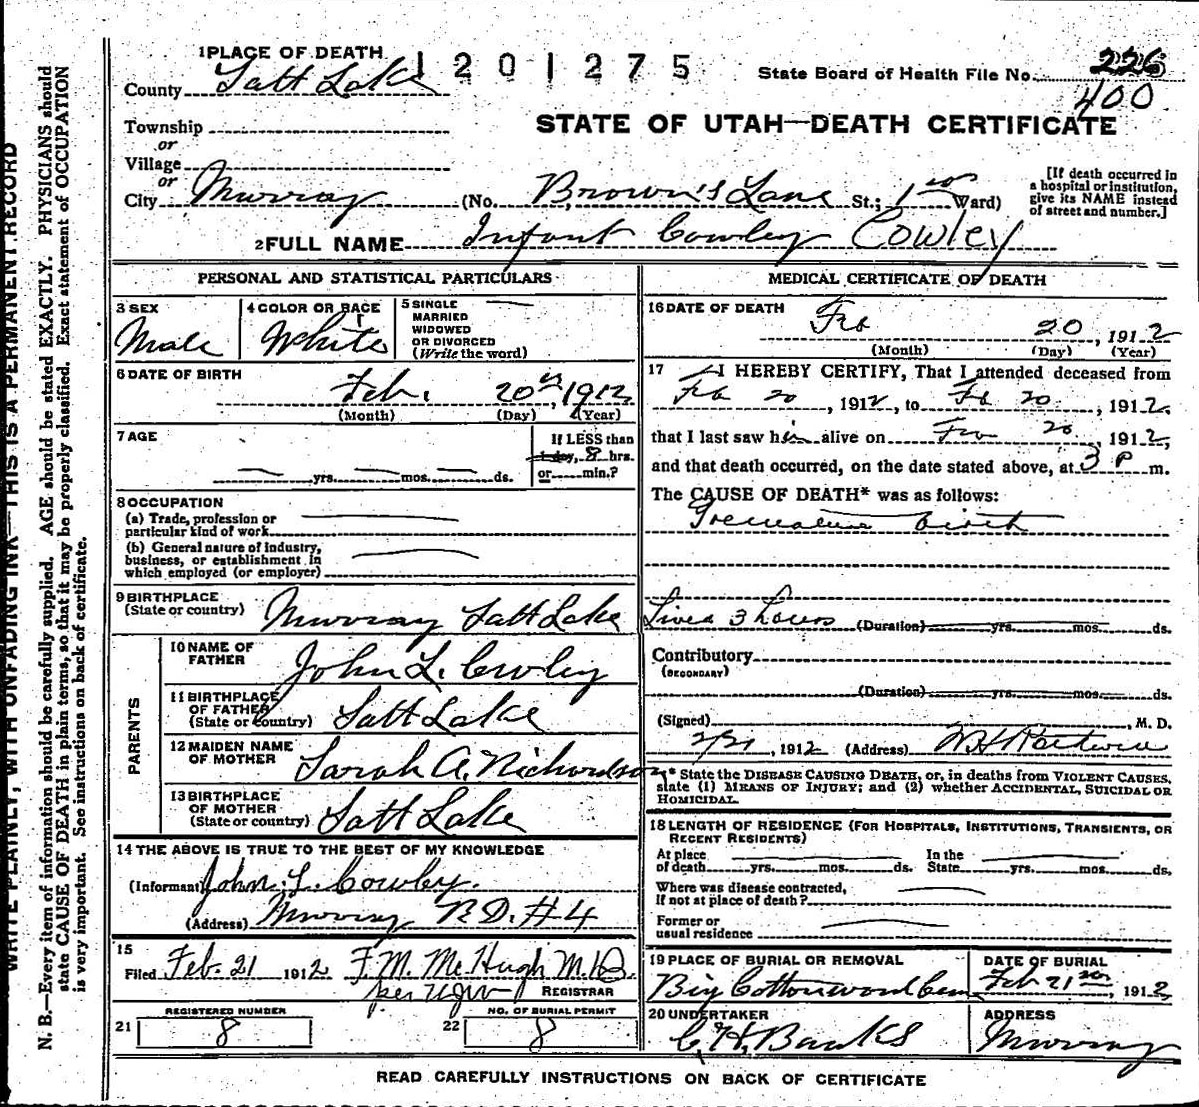 1 PLACE OF DEATH
1201275
State Board of Health File No. 226
400
County Salt Lake
STATE OF UTAH—DEATH CERTIFICATE
Township
or
Village
or
City Murray (No. Brown's Lane St.; 1st Ward)
[If death occurred in a hospital or institution, give its NAME instead of street and number.]
2 FULL NAME Infant Cowley Cowley
PERSONAL AND STATISTICAL PARTICULARS
3 SEX
Male
4 COLOR OR RACE
White
5 SINGLE
MARRIED
WIDOWED
OR DIVORCED
(Write the word)
6 DATE OF BIRTH
Feb. 20 1912
(Month) (Day) (Year)
7 AGE
yrs. mos. ds.
If LESS than
1 day, 8 hrs.
or min.?
8 OCCUPATION
(a) Trade, profession or
particular kind of work
(b) General nature of industry,
business, or establishment in
which employed (or employer)
9 BIRTHPLACE
(State or country) Murray Salt Lake
PARENTS
10 NAME OF
FATHER John L. Cowley
11 BIRTHPLACE
OF FATHER
(State or country) Salt Lake
12 MAIDEN NAME
OF MOTHER Sarah A. Richardson
13 BIRTHPLACE
OF MOTHER
(State or country) Salt Lake
14 THE ABOVE IS TRUE TO THE BEST OF MY KNOWLEDGE
(Informant) John L. Cowley.
(Address) Murray R.D. #4
15
Filed Feb. 21 1912 F. M. McHugh M.D.
per
REGISTRAR
REGISTERED NUMBER
21 8
NO. OF BURIAL PERMIT
22 8
MEDICAL CERTIFICATE OF DEATH
16 DATE OF DEATH
Feb 20, 1912
(Month) (Day) (Year)
17 I HEREBY CERTIFY, That I attended deceased from
Feb 20, 1912, to Feb 20, 1912.
that I last saw him alive on Feb 20, 1912,
and that death occurred, on the date stated above, at 3 P m.
The CAUSE OF DEATH* was as follows:
Premature birth
Lived 3 hours (Duration) yrs. mos. ds.
Contributory
(SECONDARY)
(Duration) yrs. mos. ds.
(Signed) , M. D.
2/21, 1912 (Address)
* State the DISEASE CAUSING DEATH, or, in deaths from VIOLENT CAUSES,
state (1) MEANS OF INJURY; and (2) whether ACCIDENTAL, SUICIDAL OR
HOMICIDAL.
18 LENGTH OF RESIDENCE (FOR HOSPITALS, INSTITUTIONS, TRANSIENTS, OR
RECENT RESIDENTS)
At place
of death yrs. mos. ds.
In the
State yrs. mos. ds.
Where was disease contracted,
if not at place of death?
Former or
usual residence
19 PLACE OF BURIAL OR REMOVAL
Big Cottonwood Cem
DATE OF BURIAL
Feb 21, 1912
20 UNDERTAKER
C. H. Banks
ADDRESS
Murray
READ CAREFULLY INSTRUCTIONS ON BACK OF CERTIFICATE
WRITE PLAINLY, WITH UNFADING INK—THIS IS A PERMANENT RECORD
N. B.—Every item of information should be carefully supplied. AGE should be stated EXACTLY. PHYSICIANS should
state CAUSE OF DEATH in plain terms, so that it may be properly classified. Exact statement of OCCUPATION
is very important. See instructions on back of certificate.